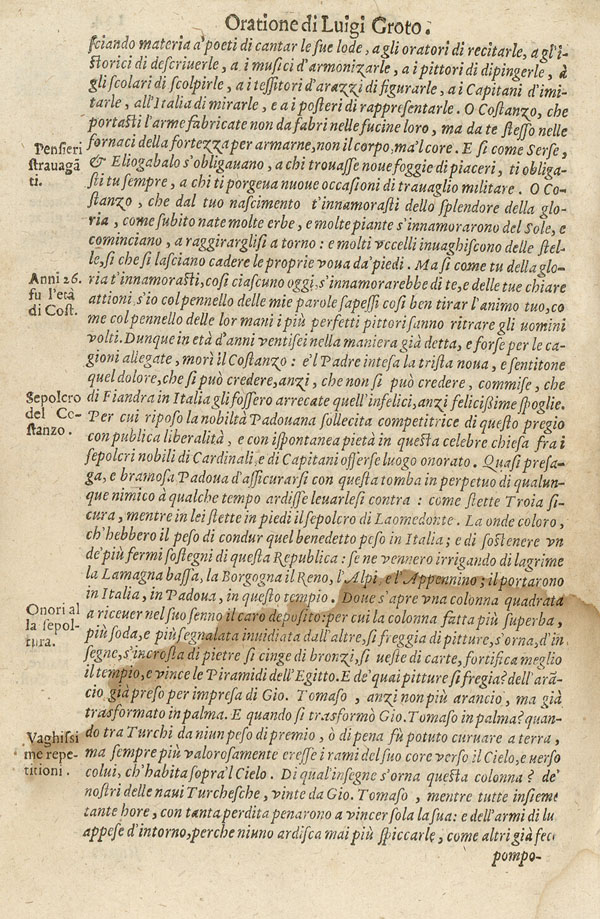 Oratione di Luigi Groto.
sciando materia a' poeti di cantar le sue lode, a gli oratori di recitarle, a gl'i-
storici di descriuerle, a i musici d'armonizarle, a i pittori di dipingerle, à
gli scolari di scolpirle, a i tessitori d'arazzi di figurarle, a i Capitani d'imi-
tarle, all'Italia di mirarle, e a i posteri di rappresentarle. O Costanzo, che
portasti l'arme fabricate non da fabri nelle fucine loro, ma da te stesso nelle
fornaci della fortezza per armarne, non il corpo, ma'l core. E si come Serse,
& Eliogabalo s'obligauano, a chi trouasse noue foggie di piaceri, ti obliga-
sti tu sempre, a chi ti porgeua nuoue occasioni di trauaglio militare. O Co-
stanzo, che dal tuo nascimento t'innamorasti dello splendore della glo-
ria, come subito nate molte erbe, e molte piante s'innamorarono del Sole, e
cominciano, a raggirarglisi a torno: e molti vccelli inuaghiscono delle stel-
le, si che si lasciano cadere le proprie voua da' piedi. Ma si come tu della glo-
ria t'innamorasti, cosi ciascuno oggi, s'innamorarebbe di te, e delle tue chiare
attioni, s'io col pennello delle mie parole sapessi cosi ben tirar l'animo tuo, co
me col pennello delle lor mani i più perfetti pittori sanno ritrare gli uomini
volti. Dunque in età d'anni ventisei nella maniera già detta, e forse per le ca-
gioni allegate, morì il Costanzo: e'l Padre intesa la trista noua, e sentitone
quel dolore, che si può credere, anzi, che non si può credere, commise, che
di Fiandra in Italia gli fossero arrecate quell'infelici, anzi felicissime spoglie.
Per cui riposo la nobiltà Padouana sollecita competitrice di questo pregio
con publica liberalità, e con ispontanea pietà in questa celebre chiesa fra i
sepolcri nobili di Cardinali, e di Capitani offerse luogo onorato. Quasi presa-
ga, e bramosa Padoua d'assicurarsi con questa tomba in perpetuo di qualun-
que nimico à qualche tempo ardisse leuarlesi contra: come stette Troia si-
cura, mentre in lei stette in piedi il sepolcro di Laomedonte. La onde coloro,
ch'hebbero il peso di condur quel benedetto peso in Italia; e di sostenere vn
de' più fermi sostegni di questa Republica: se ne vennero irrigando di lagrime
la Lamagna bassa, la Borgogna il Reno, l'Alpi, e l'Appennino; il portarono
in Italia, in Padoua, in questo tempio. Doue s'apre vna colonna quadrata
a riceuer nel suo senno il caro deposito: per cui la colonna fatta più superba,
più soda, e più segnalata inuidiata dall'altre, si freggia di pitture, s'orna, d'in
segne, s'incrosta di pietre si cinge di bronzi, si ueste di carte, fortifica meglio
il tempio, e vince le Piramidi dell'Egitto. E de' quai pitture si fregia? dell'arã
cio già preso per impresa di Gio. Tomaso, anzi non più arancio, ma già
trasformato in palma. E quando si trasformò Gio. Tomaso in palma? quan-
do tra Turchi da niun peso di premio, ò di pena fù potuto curuare a terra,
ma sempre più valorosamente eresse i rami del suo core verso il Cielo, e uerso
colui, ch'habita sopra'l Cielo. Di qual'insegne s'orna questa colonna? de'
nostri delle naui Turchesche, vinte da Gio. Tomaso, mentre tutte insieme
tante hore, con tanta perdita penarono a vincer sola la sua: e dell'armi di lu
appese d'intorno, perche niuno ardisca mai più spiccarle, come altri già fece
pompo-
Pensieri
strauagã
ti.
Anni 26.
fu l'età
di Cost.
Sepolcro
del Co-
stanzo.
Onori al
la sepol-
tura.
Vaghissi
me repe-
titioni.